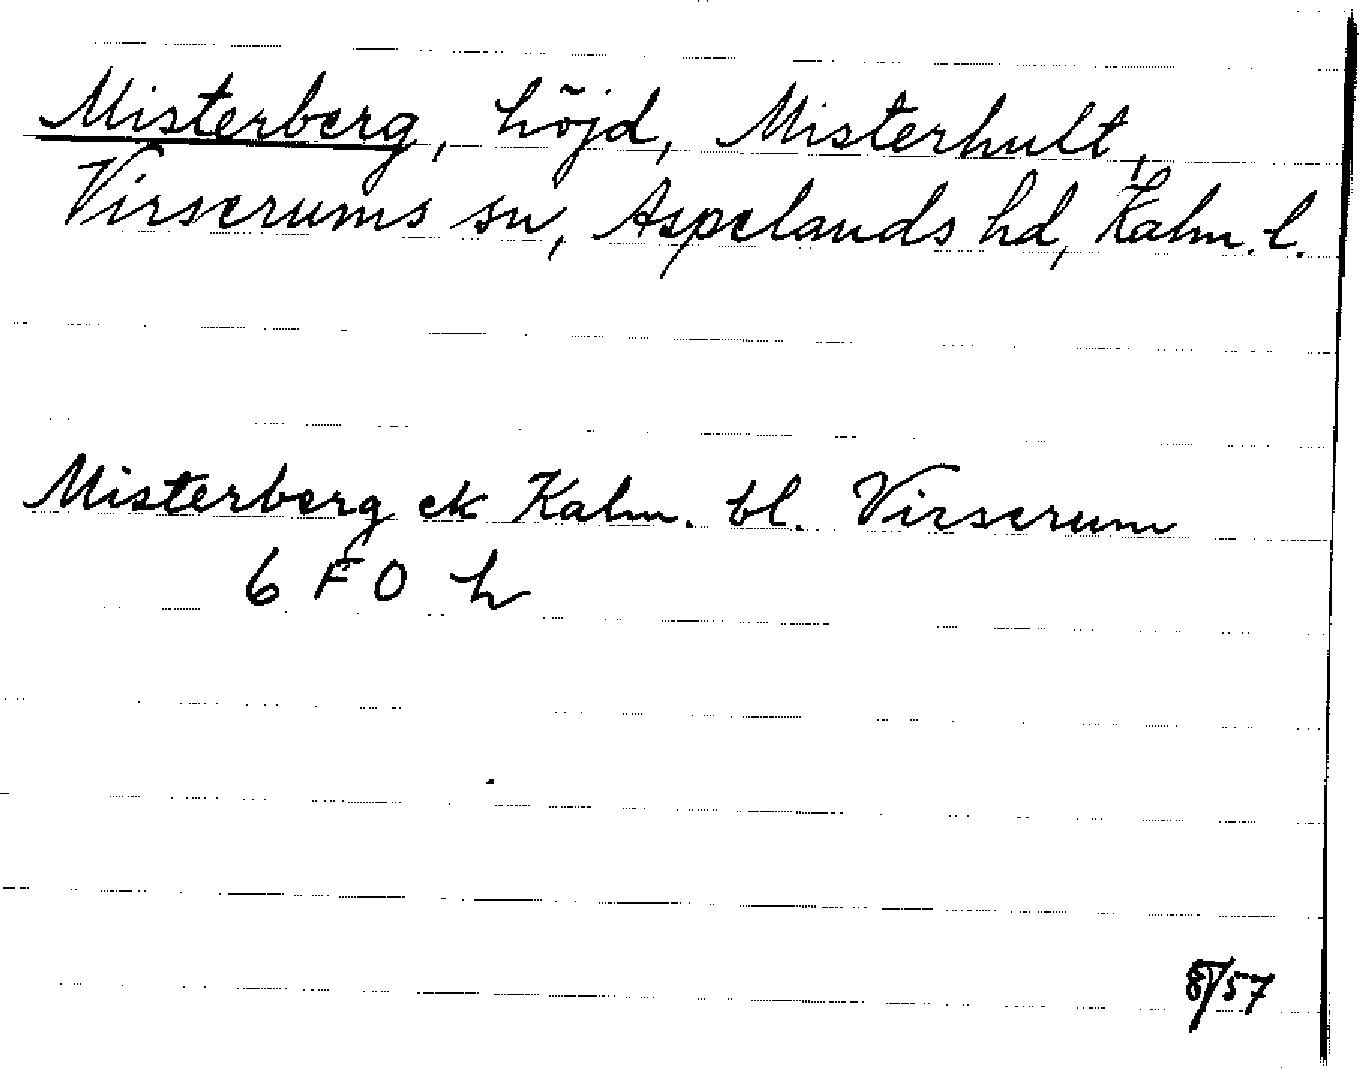 Misterberg, höjd, Misterhult,
Virserums sn, Aspelands hd, Kalm. l.
Misterberg ek Kalm. bl. Virserum
6 F O h
57